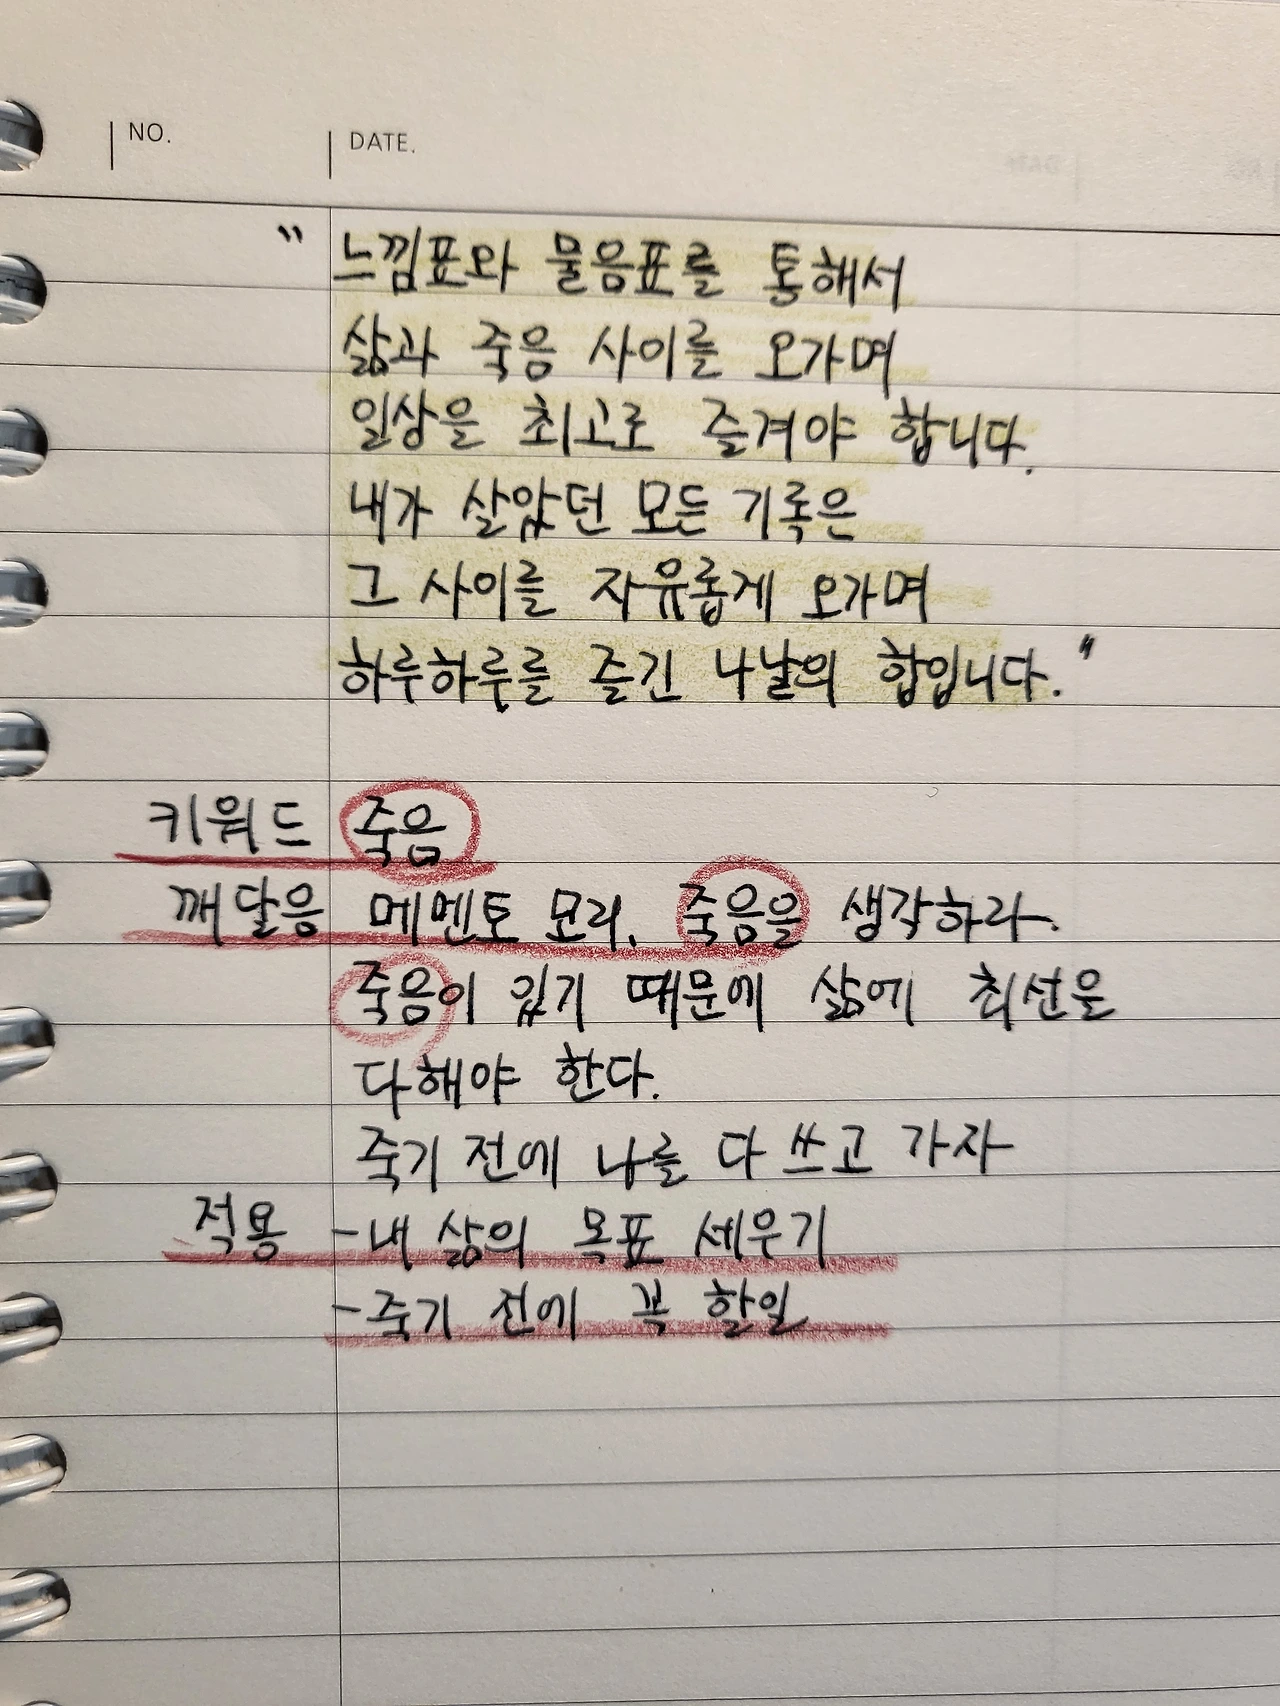 NO. DATE.
" 느낌표와 물음표를 통해서
삶과 죽음 사이를 오가며
일상을 최고로 즐겨야 합니다.
내가 살았던 모든 기록은
그 사이를 자유롭게 오가며
하루하루를 즐긴 나날의 합입니다."
키워드 죽음
깨달음 메멘토 모리, 죽음을 생각하라.
죽음이 있기 때문에 삶에 최선을
다해야 한다.
죽기 전에 나를 다 쓰고 가자
적용 -내 삶의 목표 세우기
-죽기 전에 꼭 할일